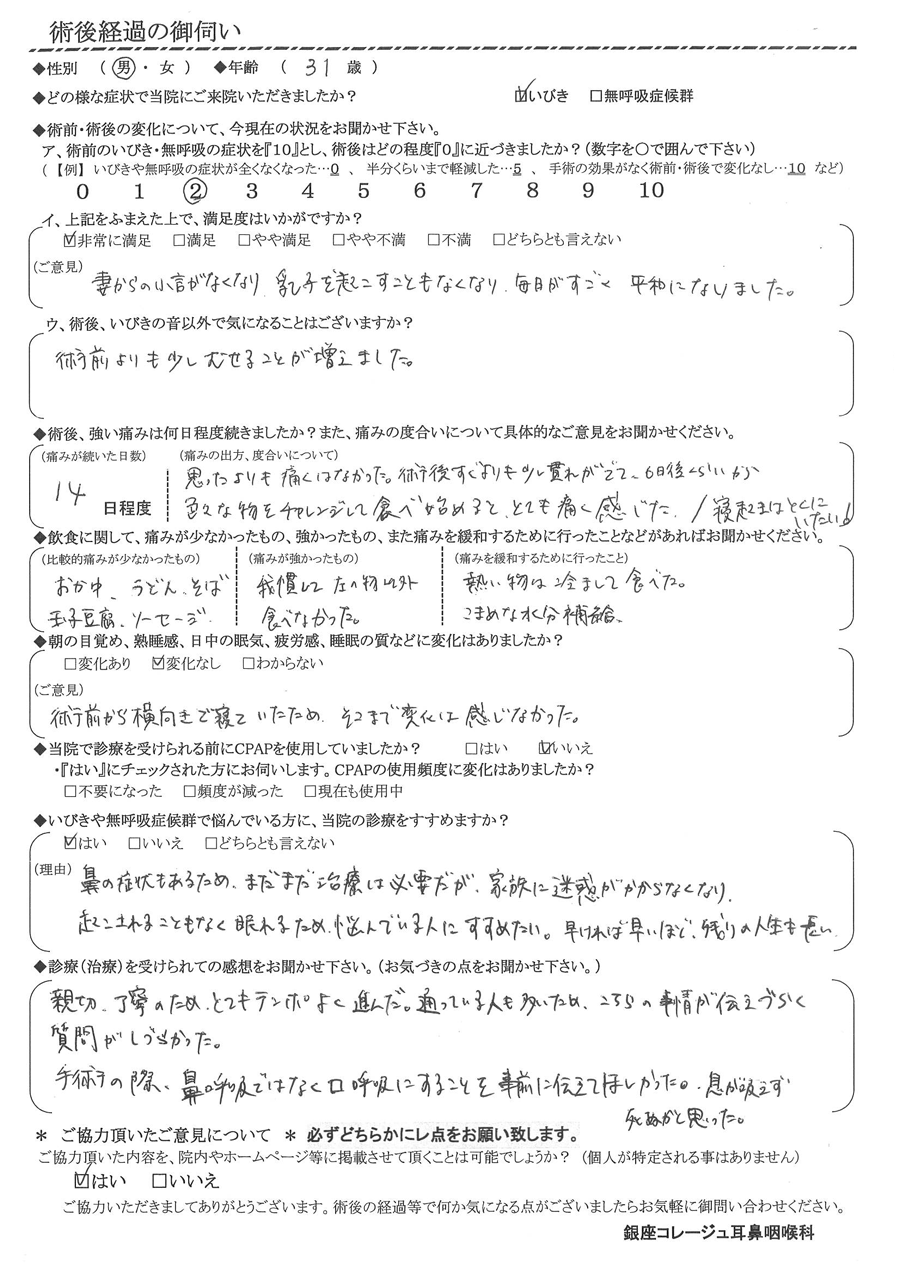 術後経過の御伺い
◆性別 ( 男 ・ 女 ) ◆年齢 ( 31 歳 )
◆どの様な症状で当院にご来院いただきましたか? ☑いびき □無呼吸症候群
◆術前・術後の変化について、今現在の状況をお聞かせ下さい。
ア、術前のいびき・無呼吸の症状を『10』とし、術後はどの程度『0』に近づきましたか?(数字を〇で囲んで下さい)
(【例】 いびきや無呼吸の症状が全くなくなった…0 、 半分くらいまで軽減した…5 、 手術の効果がなく術前・術後で変化なし…10 など)
0 1 2 3 4 5 6 7 8 9 10
イ、上記をふまえた上で、満足度はいかがですか?
☑非常に満足 □満足 □やや満足 □やや不満 □不満 □どちらとも言えない
(ご意見)
妻からの小言がなくなり、乳子を起こすこともなくなり、毎日がすごく 平和になりました。
ウ、術後、いびきの音以外で気になることはございますか?
術前よりも少しむせることが増えました。
◆術後、強い痛みは何日程度続きましたか?また、痛みの度合いについて具体的なご意見をお聞かせください。
(痛みが続いた日数) (痛みの出方、度合いについて)
14 日程度
思ったよりも痛くはなかった。術後すぐよりも少し慣れがでて、6日後くらいから
色々な物をチャレンジして食べ始めると、とても痛く感じた。/寝起きはとくに
いたい
◆飲食に関して、痛みが少なかったもの、強かったもの、また痛みを緩和するために行ったことなどがあればお聞かせください。
(比較的痛みが少なかったもの) (痛みが強かったもの) (痛みを緩和するために行ったこと)
おかゆ、うどん、そば 我慢して左の物以外 熱い物は冷まして食べた。
玉子豆腐、ソーセージ 食べなかった。 こまめな水分補給、
◆朝の目覚め、熟睡感、日中の眠気、疲労感、睡眠の質などに変化はありましたか?
□変化あり ☑変化なし □わからない
(ご意見)
術前から横向きで寝ていたため、そこまで変化は感じなかった。
◆当院で診療を受けられる前にCPAPを使用していましたか? □はい ☑いいえ
・『はい』にチェックされた方にお伺いします。CPAPの使用頻度に変化はありましたか?
□不要になった □頻度が減った □現在も使用中
◆いびきや無呼吸症候群で悩んでいる方に、当院の診療をすすめますか?
☑はい □いいえ □どちらとも言えない
(理由)
鼻の症状もあるため、まだまだ治療は必要だが、家族に迷惑がかからなくなり、
起こされることもなく眠れるため、悩んでいる人にすすめたい。早ければ早いほど、残りの人生も長い、
◆診療(治療)を受けられての感想をお聞かせ下さい。(お気づきの点をお聞かせ下さい。)
親切、丁寧のため、とてもテンポよく進んだ。通っている人も多いため、こちらの事情が伝えづらく
質問がしづらかった。
手術の際、鼻呼吸ではなく口呼吸にすることを事前に伝えてほしかった。息が吸えず
死ぬかと思った。
* ご協力頂いたご意見について * 必ずどちらかにレ点をお願い致します。
ご協力頂いた内容を、院内やホームページ等に掲載させて頂くことは可能でしょうか? (個人が特定される事はありません)
☑はい □いいえ
ご協力いただきましてありがとうございます。術後の経過等で何か気になる点がございましたらお気軽に御問い合わせください。
銀座コレージュ耳鼻咽喉科